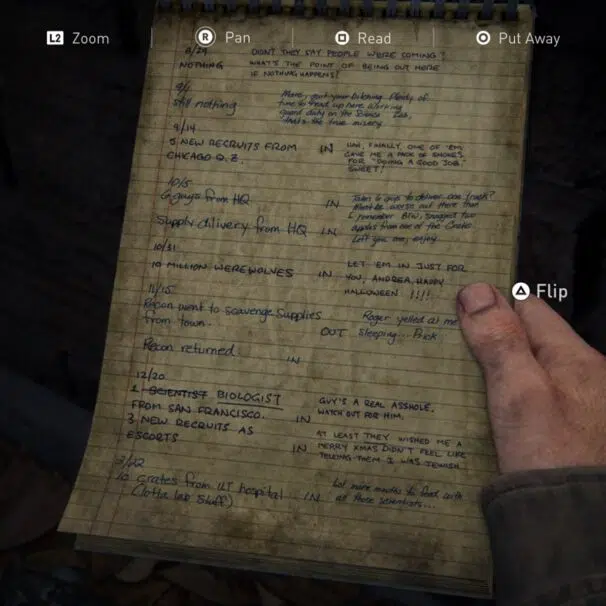 L2 Zoom
R Pan
Read
Put Away
Flip
8/29 DON'T THEY SAY PEOPLE WERE COMING?
NOTHING WHAT'S THE POINT OF BEING OUT HERE
IF NOTHING HAPPENS?
9/1 your bitching. Plenty of
still nothing time to read up here. Working
guard duty on the Science
that's the true misery.
9/14
5 NEW RECRUITS FROM IN HAH, FINALLY, ONE OF 'EM
CHICAGO Q.Z. GAVE ME A PACK OF SMOKES
FOR "DOING A GOOD JOB."
SWEET!
10/5
6 guys from HQ IN Takes 6 guys to deliver one
Must be worse out there than
I remember. BTW, snagged two
Supply delivery from HQ IN apples from one of the crates.
Left you one, enjoy.
10/31
10 MILLION WEREWOLVES IN LET 'EM IN JUST FOR
YOU, ANDREA. HAPPY
HALLOWEEN !!!!
11/15
Recon went to scavenge supplies Roger yelled at me
from town. OUT sleeping... Prick
Recon returned. IN
12/20
1 SCIENTIST BIOLOGIST GUY'S A REAL ASSHOLE.
FROM SAN FRANCISCO. IN WATCH OUT FOR HIM.
3 NEW RECRUITS AS
ESCORTS IN AT LEAST THEY WISHED ME A
MERRY XMAS DIDN'T FEEL LIKE
TELLING THEM I WAS JEWISH.
3/22
10 crates from hospital IN Lot more mouths to feed with
(lotta lab stuff) all these scientists...